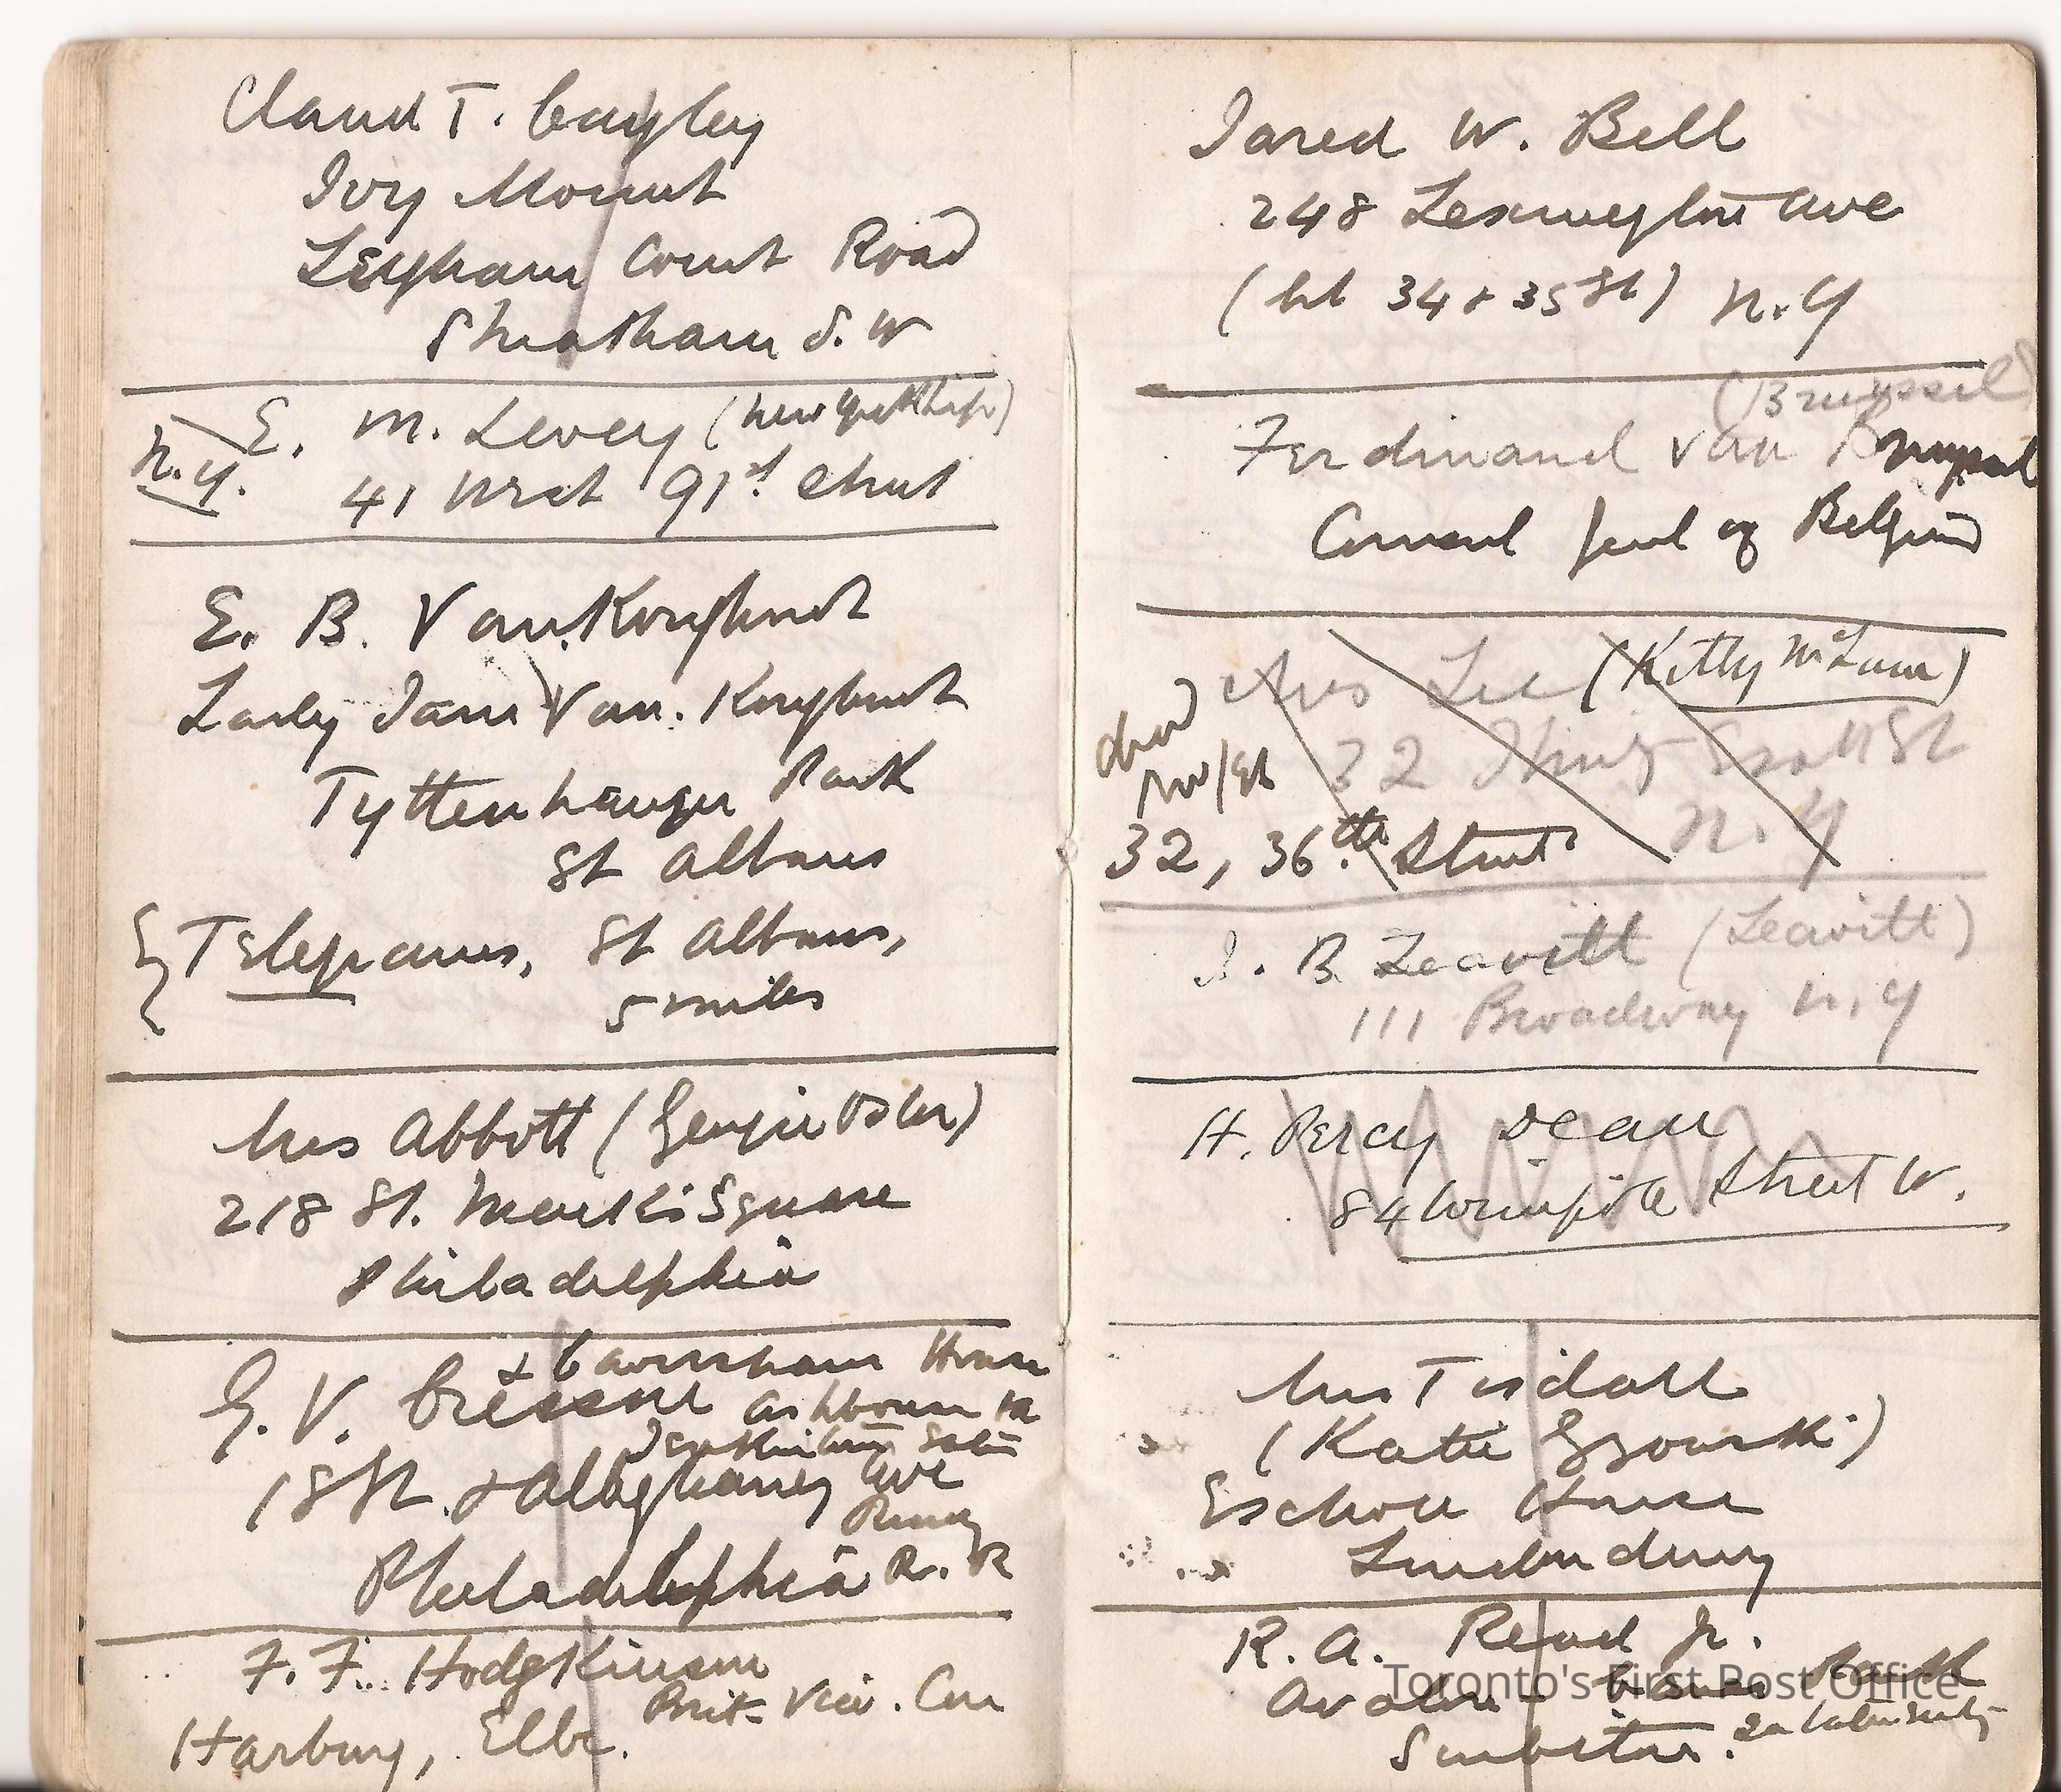 Claud T. Cayley
Ivy Mount
Leigham Court Road
Streatham S.W
E. M. Levey (New York Life)
N.Y. 41 West 91st Street
E. B. Van.Koughnet
Lady Jane Van. Koughnet
Tyttenhanger Park
St Albans
Telegrams, St Albans,
5 miles
Mrs Abbott (Georgie Osler)
218 St. Marks Square
Philadelphia
& Caversham House
G. V. Cresson Ashbourn
18 St. & Allegheney Ave
Philadelphia R. R
F. F. Hodgkinson
Brit- Vice. Con
Harburg, Elbe.
Jared W. Bell
248 Lexington Ave
(bt 34 & 35 St) N.Y
(Bruyssel)
Ferdinand Van Bruyssel
Consul Genl of Belgium
Mrs Lee (Kitty McLane)
dead
32 Thirty Sixth St
N.Y
32, 36th. Street
J. B. Leavitt (Leavitt)
111 Broadway N.Y
H. Percy Dean
84 Wimpole Street W.
Mrs Tisdall
(Katie Gzowski)
House
Londonderry
R. A. Read Jr.
Avalon
Surbiton.
Toronto's First Post Office